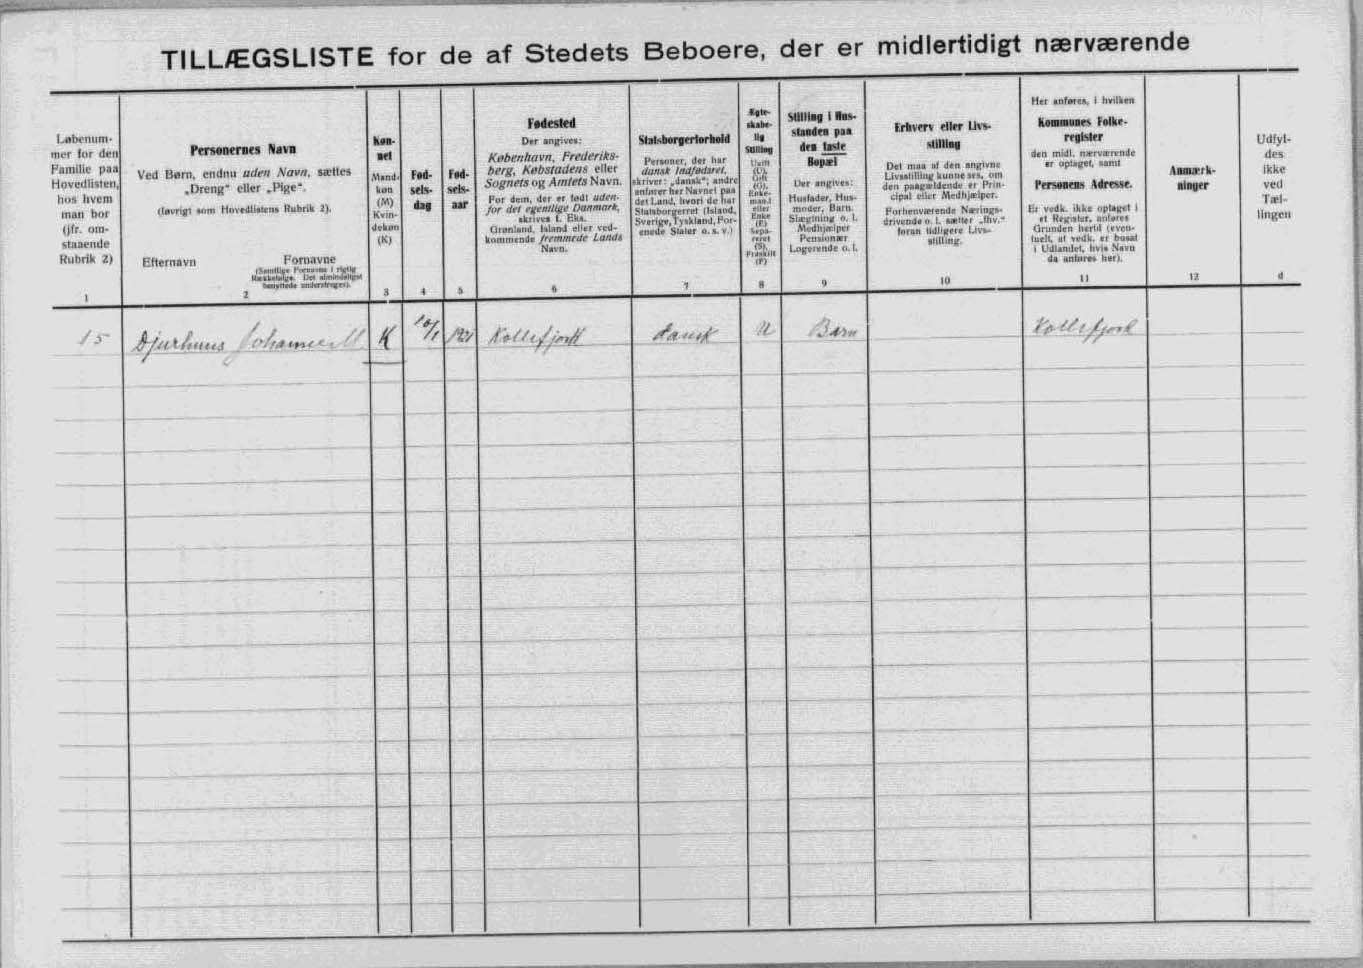 TILLÆGSLISTE for de af Stedets Beboere, der er midlertidigt nærværende
Løbenum-
mer for den
Familie paa
Hovedlisten,
hos hvem
man bor
(jfr. om-
staaende
Rubrik 2)
1
Personernes Navn
Ved Børn, endnu uden Navn, sættes
„Dreng“ eller „Pige“.
(Iøvrigt som Hovedlistens Rubrik 2).
Efternavn
Fornavne
(Samtlige Fornavne i rigtig
Rækkefølge. Det almindeligst
benyttede understreges).
2
Køn-
net
Mand-
køn
(M)
Kvin-
dekøn
(K)
3
Fød-
sels-
dag
4
Fød-
sels-
aar
5
Fødested
Der angives:
København, Frederiks-
berg, Købstadens eller
Sognets og Amtets Navn.
For dem, der er født uden-
for det egentlige Danmark,
skrives f. Eks.
Grønland, Island eller ved-
kommende fremmede Lands
Navn.
6
Statsborgerforhold
Personer, der har
dansk Indfødsret,
skriver: „dansk“; andre
anfører her Navnet paa
det Land, hvori de har
Statsborgerret (Island,
Sverige, Tyskland, For-
enede Stater o. s. v.)
7
Ægte-
skabe-
lig
Stilling
Ugift
(U),
Gift
(G),
Enke-
mand
eller
Enke
(E)
Sepa-
reret
(S),
Fraskilt
(F)
8
Stilling i Hus-
standen paa
den faste
Bopæl
Der angives:
Husfader, Hus-
moder, Barn.
Slægtning o. l.
Medhjælper
Pensionær
Logerende o. l.
9
Erhverv eller Livs-
stilling
Det maa af den angivne
Livsstilling kunne ses, om
den paagældende er Prin-
cipal eller Medhjælper.
Forhenværende Nærings-
drivende o. l. sætter „fhv.“
foran tidligere Livs-
stilling.
10
Her anføres, i hvilken
Kommunes Folke-
register
den midl. nærværende
er optaget, samt
Personens Adresse.
Er vedk. ikke optaget i
et Register, anføres
Grunden hertil (even-
tuelt, at vedk. er bosat
i Udlandet, hvis Navn
da anføres her).
11
Anmærk-
ninger
12
Udfyl-
des
ikke
ved
Tæl-
lingen
d
15 Djurhuus Johanne M K 10/1 1921 Kollefjord dansk U Barn Kollefjord